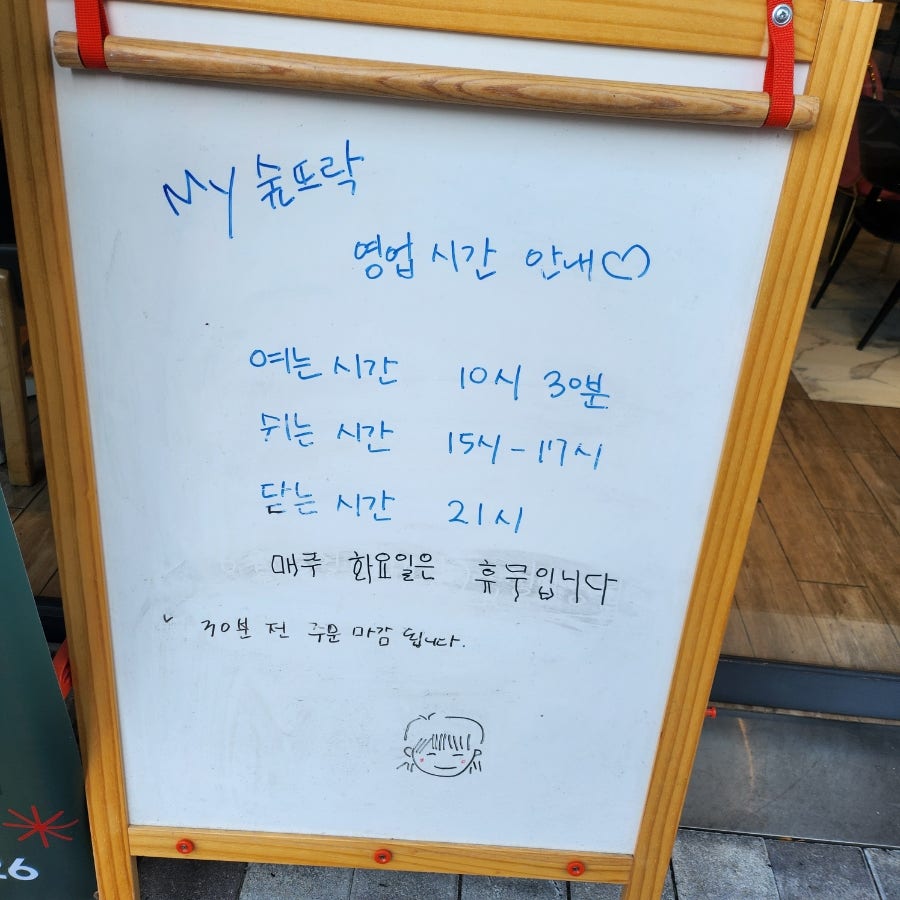 My 숲뜨락
영업 시간 안내♡
여는 시간 10시 30분
쉬는 시간 15시-17시
닫는 시간 21시
매주 화요일은 휴무입니다
✓ 30분 전 주문 마감 됩니다.
26